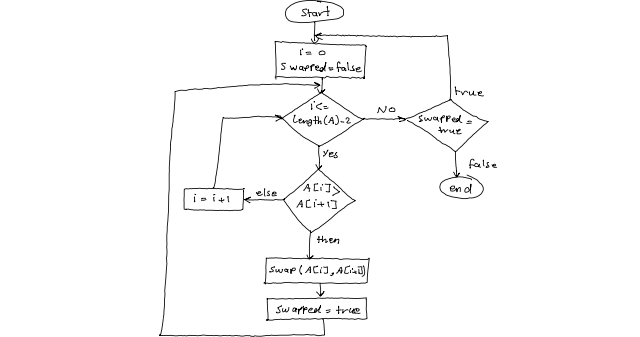 Start
i = 0
Swapped=false
i<=
length(A)-2
NO
swapped=
true
true
false
end
yes
A[i]>
A[i+1]
else
i = i+1
then
swap(A[i], A[i+1])
Swapped = true